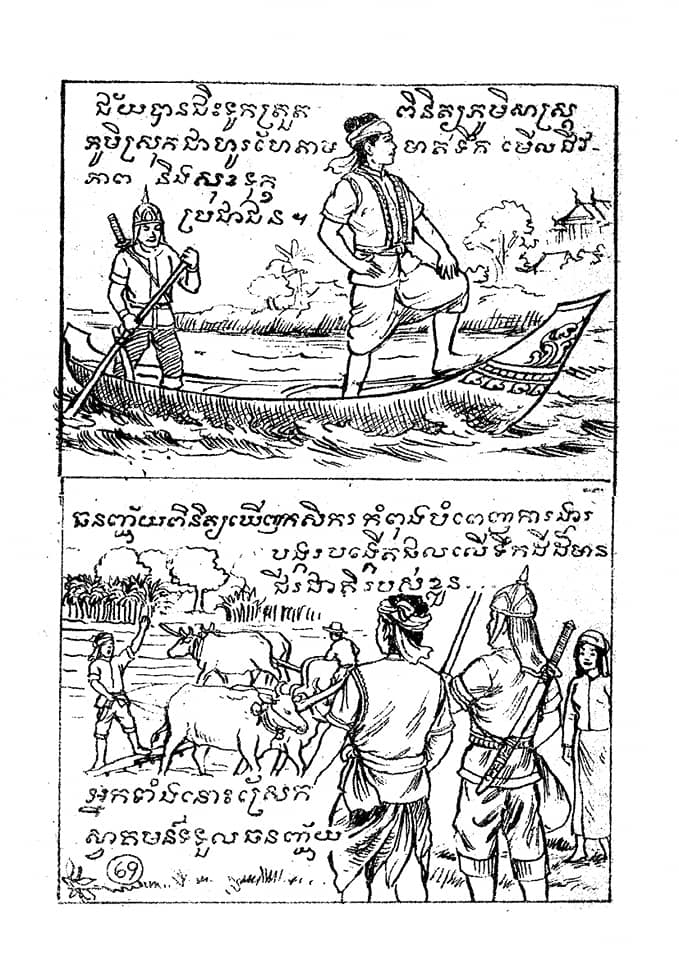 ជ័យបានជិះទូកត្រួត ពិនិត្យភូមិសាស្ត្រ
ភូមិស្រុកជាហូរហែតាម មាត់ទឹក មើលជីវ-
ភាព និងសុខទុក្ខ
ប្រជាជន។
ធនញ្ជ័យពិនិត្យឃើញកសិករ កំពុងបំពេញការងារ
បង្ករបង្កើតផលលើទឹកដីដ៏មាន
ជីរជាតិរបស់ខ្លួន
អ្នកទាំងនោះស្រែក
ស្វាគមន៍ទទួលធនញ្ជ័យ
69